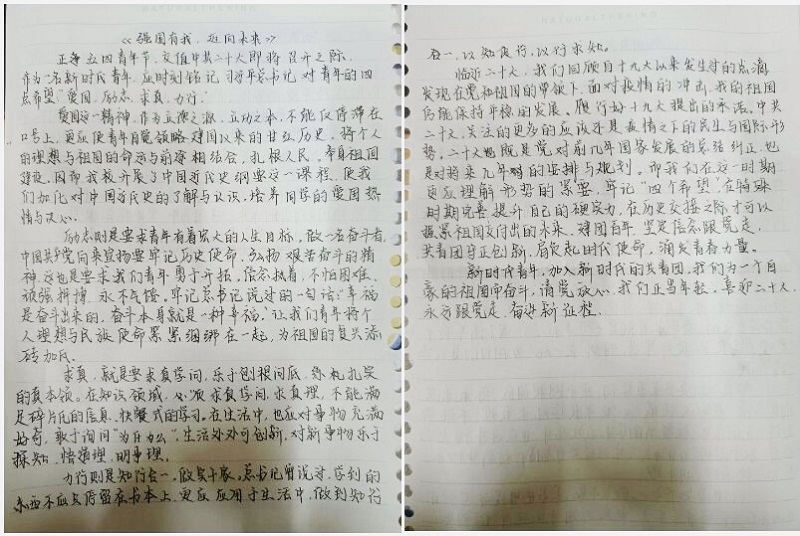 《强国有我，迈向未来》
正逢五四青年节，又值中共二十大即将召开之际，
作为一名新时代青年，应时刻铭记习近平总书记对青年的四
点希望"爱国，励志，求真，力行。"
爱国这一精神，作为立德之源，立功之本，不能仅停滞在
口号上，更应使青年自觉领略建国以来的甘红历史，将个人
的理想与祖国的命运与前途相结合，扎根人民，奉身祖国
建设，因那我校开展了中国近代史纲要这一课程，使我
们加化对中国近代史的了解与认识，培养同学的爱国热
情与决心。
励志则是要求青年有着宏大的人生目标，做一名奋斗者，
中国共产党向来宣扬要牢记历史使命，弘扬艰苦奋斗的精
神，这也是要求我们青年勇于开拓，信念执着，不怕困难，
顽强拼搏，永不气馁。牢记总书记说过的一句话："幸福
是奋斗出来的，奋斗本身就是一种幸福。"让我们青年将个
人理想与民族使命紧紧绷绑在一起，为祖国的复兴添
砖加瓦。
求真，就是要求真学问，乐于刨根问底，练就扎实
的真本领。在知识领域，必须求真学问，求真理，不能满
足碎片化的信息，快餐式的学习。在生活中，也应对事物充满
好奇，敢于询问"为什么"，生活处处可创新，对新事物乐于
探知，悟道理，明事理。
力行则是知行合一，做实干家。总书记曾说过，学到的
东西不应只停留在书本上，更应应用于生活中，做到知行
合一，以知促行，以行求知。
临近二十大，我们回顾自十九大以来发生过的点滴，
发现在党和祖国的带领下，面对疫情的冲击，我的祖国
仍能保持平稳的发展。履行好十九大提出的承诺。中共
二十大，关注的更多的应该还是疫情之下的民生与国际形
势。二十大既是党对前几年国家发展的总结纠正，也
是对将来几年对的安排与规划。而我们在这一时期
更应理解形势的紧要，牢记"四个希望"，在特殊
时期完善提升自己的硬实力，在历史交接之际才可以
握紧祖国交付出的未来。建团百年，坚定信念跟党走，
共青团守正创新，肩负起时代使命，涌矢青春力量。
新时代青年，加入新时代的共青团，我们为一个自
豪的祖国而奋斗，请党放心，我们正当年轻，喜迎二十大，
永远跟党走，奋进新征程。